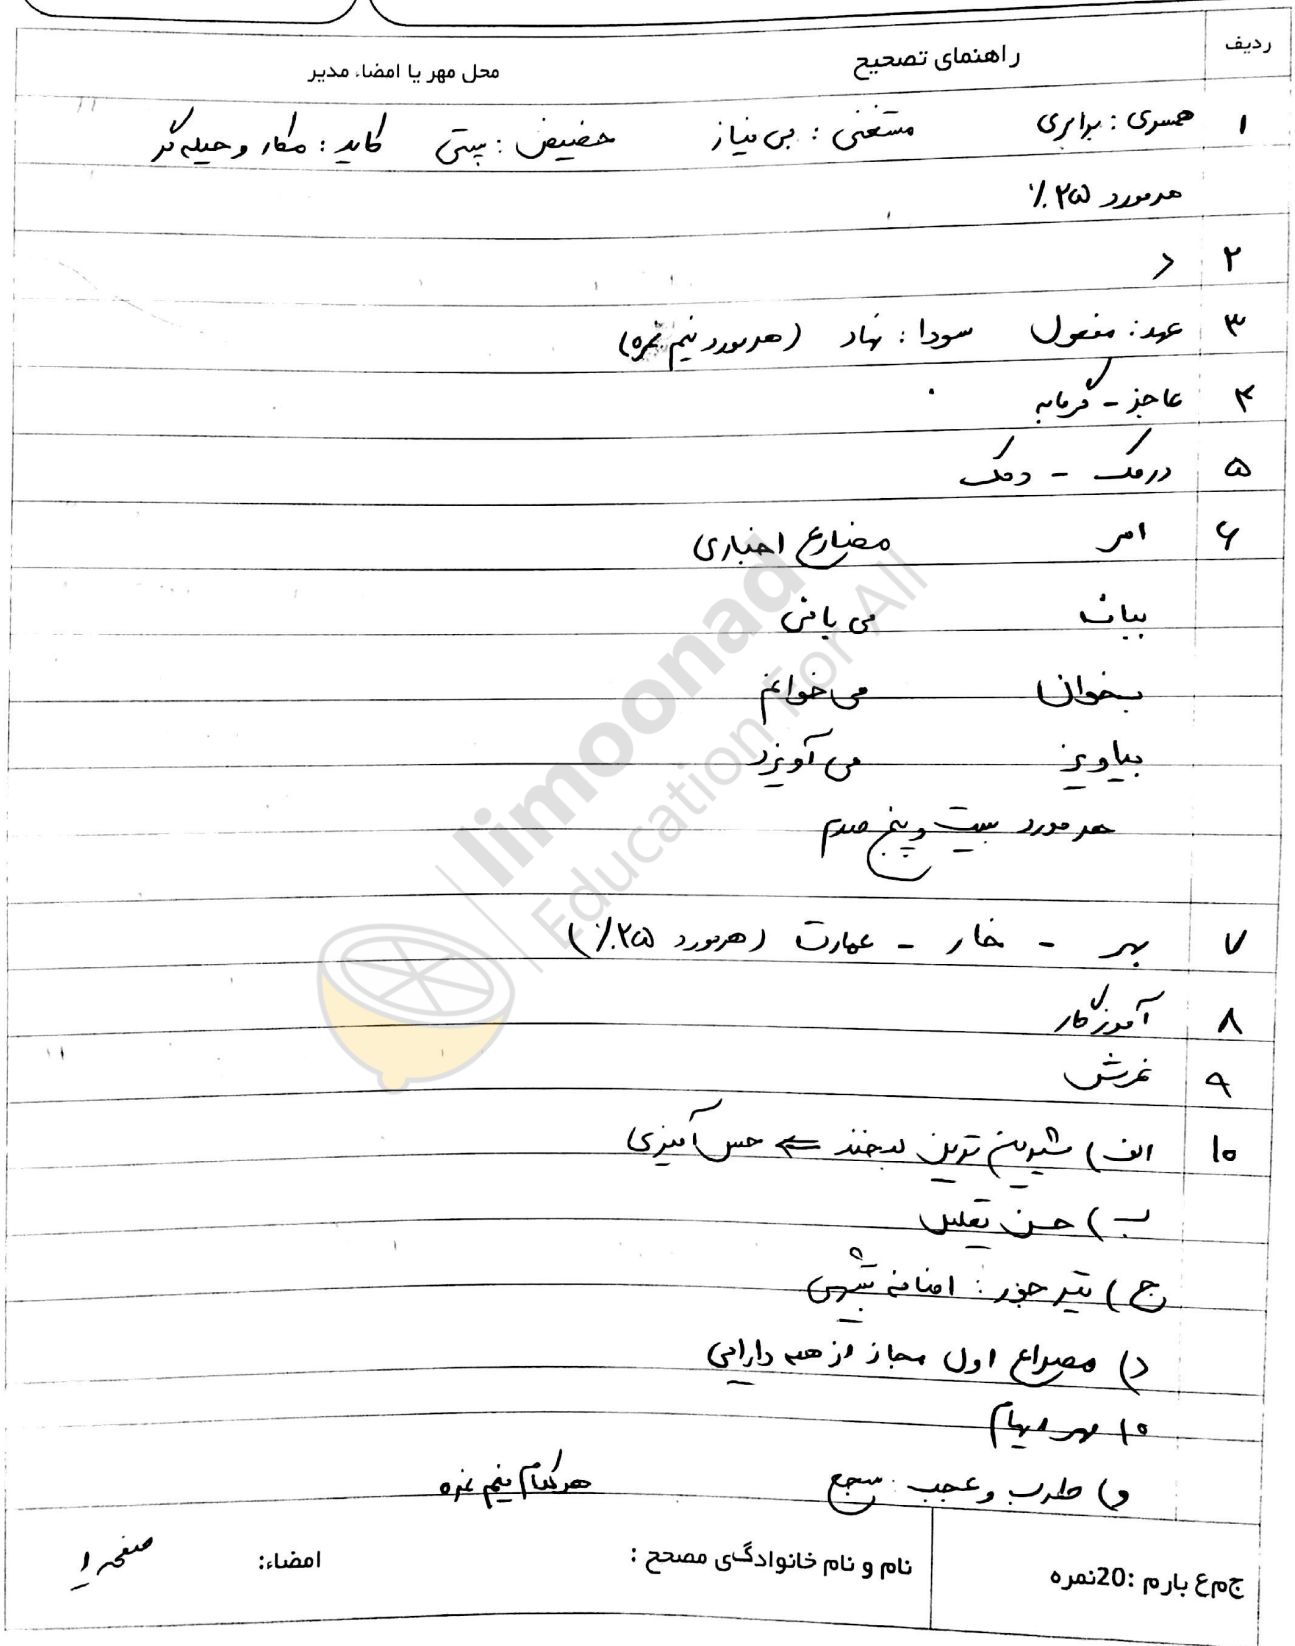 ردیف
راهنمای تصحیح
محل مهر یا امضاء مدیر
۱ همسری : برابری مستغنی : بی نیاز حضیض : پستی کاید : مکار و حیله گر
هرمورد ۲۵٪
۲ د
۳ عهد : مفعول سودا : نهاد (هرمورد نیم نمره)
۴ عاجز - گرمابه
۵ درمک - دمک
۶ امر مضارع اخباری
بباف می بافی
بخوان می خوانم
بیاویز می آویزد
هر مورد بیست و پنج صدم
۷ بهر - خار - عمارت (هرمورد ۲۵٪)
۸ آموزگار
۹ غرش
۱۰ الف) شیرین ترین لبخند ⇐ حس آمیزی
ب) حسن تعلیل
ج) تیر جور : اضافه تشبیهی
د) مصراع اول مجاز از همه دارایی
ه) مهر ایهام
و) طرب و عجب : سجع هرکدام نیم نمره
جمع بارم :20نمره
نام و نام خانوادگی مصحح :
امضاء:
صفحه ۱
limoonad
Education For All